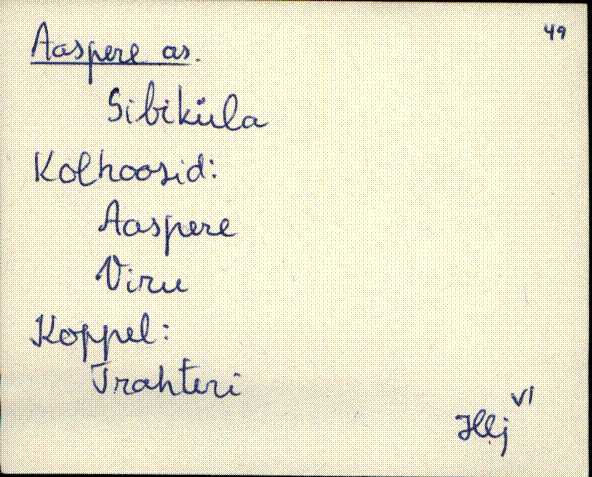 49
Aaspere as.
Sibiküla
Kolhoosid:
Aaspere
Viru
Koppel:
Trahteri
Hlj VI